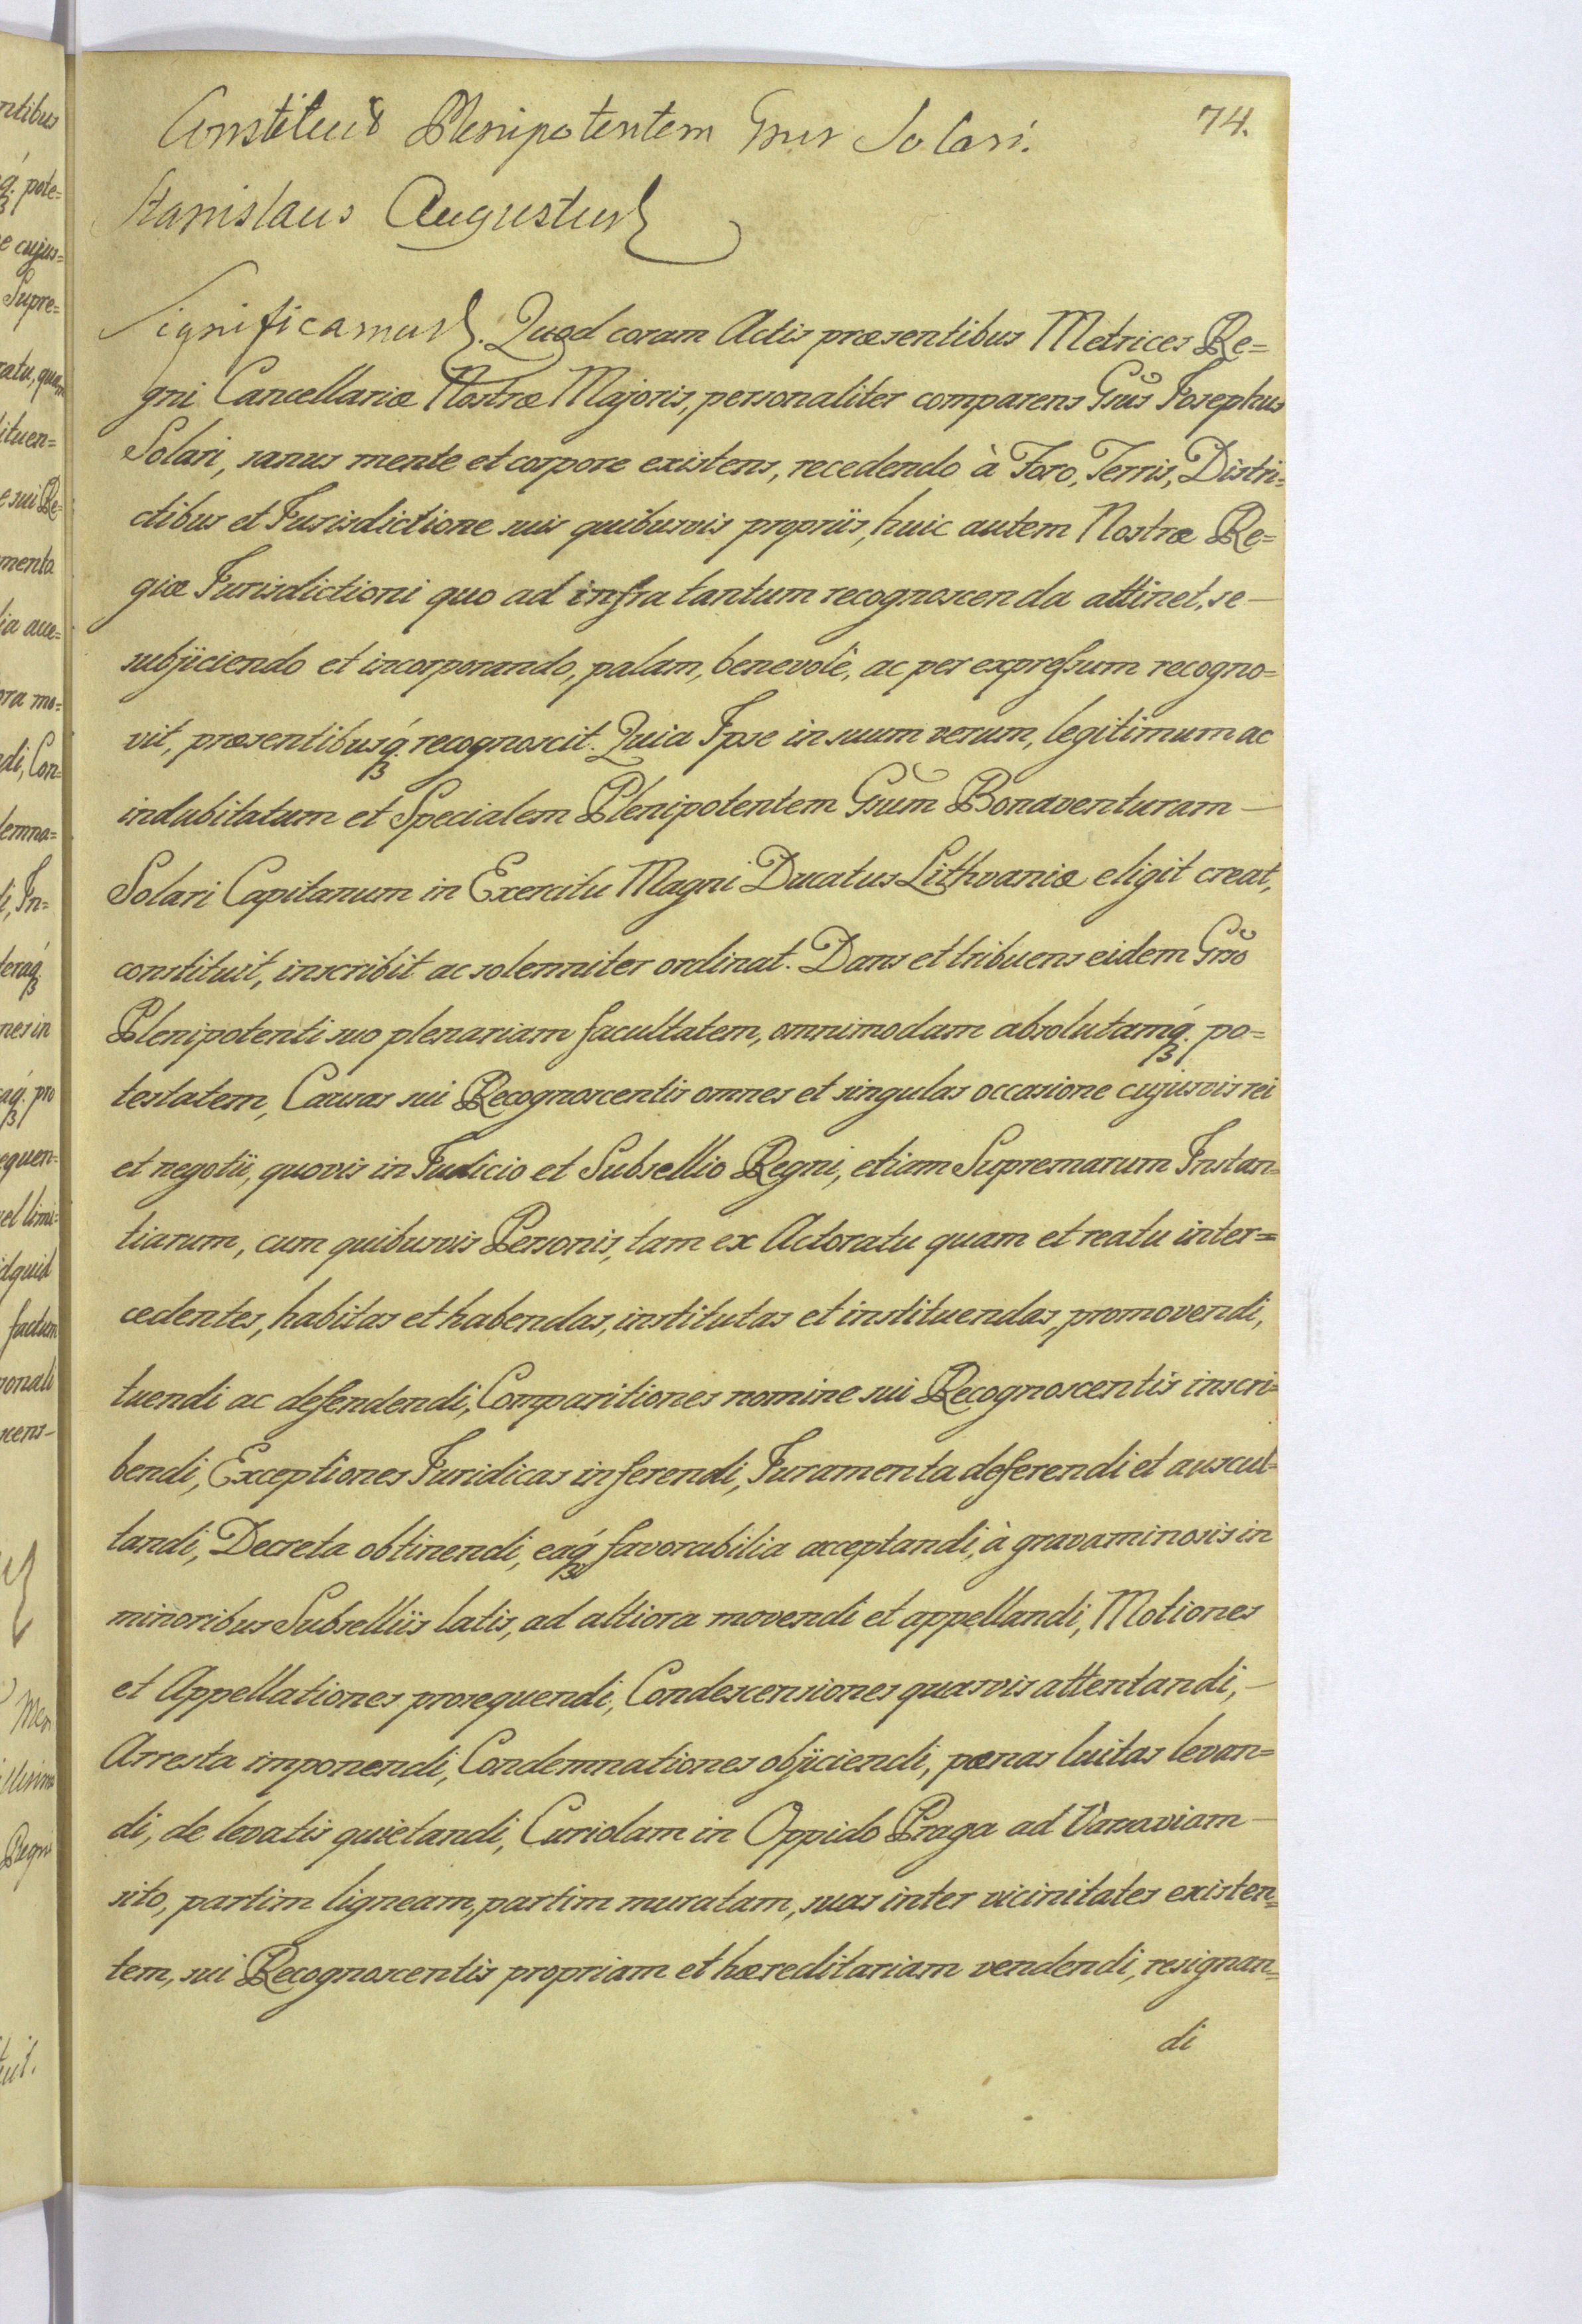 74.
Constituit Plenipotentem Gnus Solari.
Stanislaus Augustus
Significamus. Quod coram Actis præsentibus Metrices Re=
gni Cancellariæ Nostræ Majoris, personaliter comparens Gnus Josephus
Solari, sanus mente et corpore existens, recedendo à Foro, Terris, Distri=
ctibus et Jurisdictione suis quibusvis propriis, huic autem Nostræ Re=
giæ Jurisdictioni quo ad infra tantum recognoscenda attinet, se—
subjiciendo et incorporando, palam, benevolè, ac per expressum recogno=
vit, præsentibusq́; recognoscit. Quia Ipse in suum verum, legitimum ac
indubitatum et Specialem Plenipotentem Gnum Bonaventuram—
Solari Capitanum in Exercitu Magni Ducatus Lithvaniæ eligit creat,
constituit, inscribit ac solemniter ordinat. Dans et tribuens eidem Gnso
Plenipotenti suo plenariam facultatem, omnimodam absolutamq́; po=
testatem, Causas sui Recognoscentis omnes et singulas occasione cujusvis rei
et negotii, quovis in Judicio et Subsellio Regni, etiam Supremarum Instan=
tiarum, cum quibusvis Personis, tam ex Actoratu quam et reatu inter=
cedentes, habitas et habendas, institutas et instituendas, promovendi,
tuendi ac defendendi, Comparitiones nomine sui Recognoscentis inscri=
bendi, Exceptiones Juridicas inferendi, Juramenta deferendi et auscul=
tandi, Decreta obtinendi, eaq́; favorabilia acceptandi, à gravaminosis in
minoribus Subselliis latis, ad altiora movendi et appellandi, Motiones
et Appellationes prosequendi, Condescensiones quasvis attentandi,—
Arresta imponendi, Condemnationes objiciendi, pœnas luitas levan=
di, de levatis quietandi, Curiolam in Oppido Praga ad Varsaviam—
sito, partim ligneam, partim muratam, suas inter vicinitates existen=
tem, sui Recognoscentis propriam et hæreditariam vendendi, resignan=
di